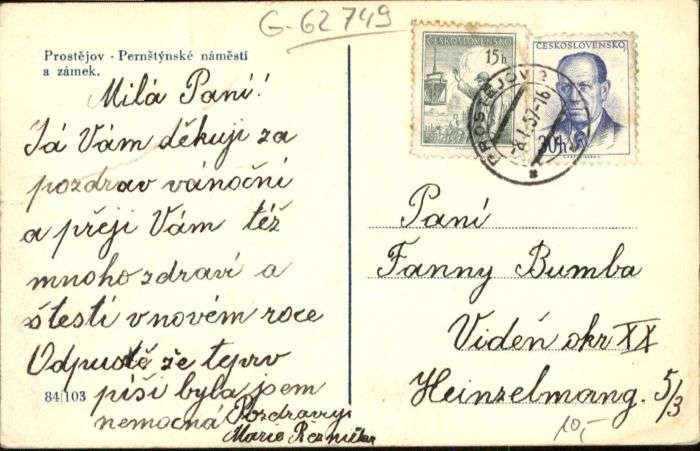 G-62749
Prostějov - Pernštýnské náměstí
a zámek.
Milá Paní!
Já Vám děkuji za
pozdrav vánoční
a přeji Vám též
mnoho zdraví a
štestí v novém roce
Odpustě že teprv
píši byla jsem
nemocná
Pozdravuji
Marie
84|103
ČESKOSLOVENSKO
15h
ČESKOSLOVENSKO
30h
PROSTĚJOV 2
Paní
Fanny Bumba
Videň okr XX
Heinzelmang. 5/3
10,-